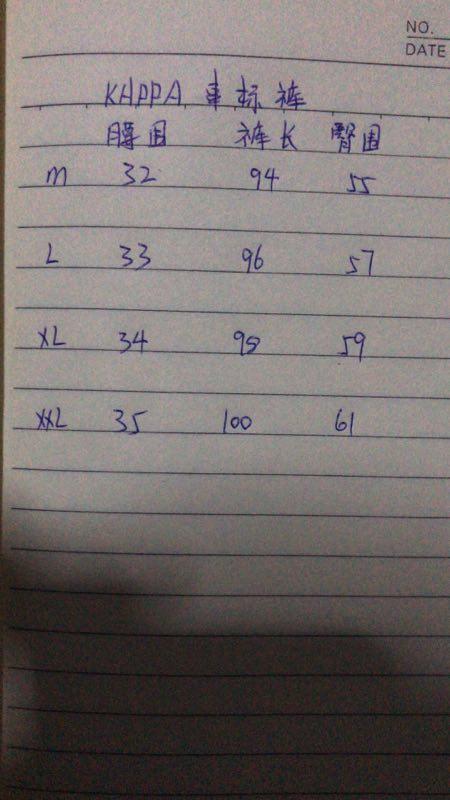 NO.
DATE
KAPPA 串标裤
腰围 裤长 臀围
m 32 94 55
L 33 96 57
XL 34 98 59
XXL 35 100 61